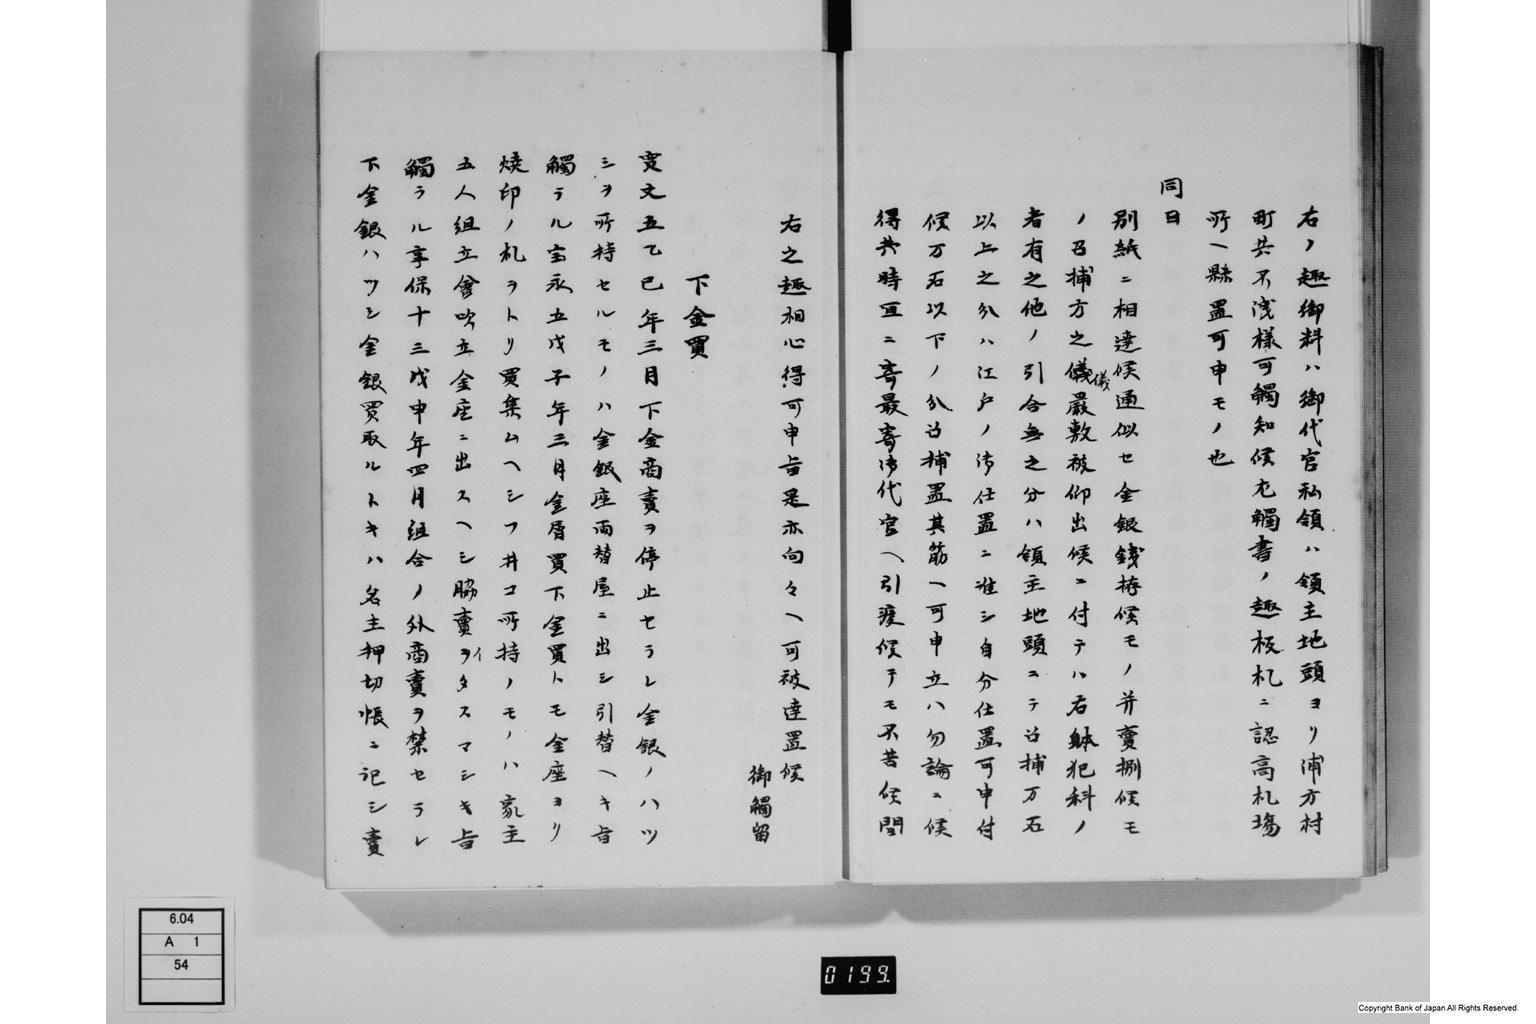 右ノ趣御料ハ御代官私領ハ領主地頭ヨリ浦方村
町共不洩様可觸知候尤觸書ノ趣板札ニ認高札場
所ヘ縣置可申モノ也
同日
別紙ニ相達候通似セ金銀銭拵候モノ并賣捌候モ
ノ召捕方之儀嚴敷被仰出候ニ付テハ右躰犯科ノ
儀
者有之他ノ引合無之分ハ領主地頭ニテ召捕万石
以上之分ハ江戸ノ御仕置ニ准シ自分仕置可申付
候万石以下ノ分召捕置其筋ヘ可申立ハ勿論ニ候
得共時宜ニ寄最寄御代官ヘ引渡候テモ不苦候間
右之趣相心得可申旨是亦向々ヘ可被達置候
御觸留
下金買
寛文五乙巳年三月下金商賣ヲ停止セラレ金銀ノハツ
シヲ所持セルモノハ金銀座両替屋ニ出シ引替ヘキ旨
觸ラル宝永五戊子年三月金屑買下金買トモ金座ヨリ
燒印ノ札ヲトリ買集ムヘシフ井コ所持ノモノハ家主
五人組立會吹立金座ニ出スヘシ脇賣ヲイタスマシキ旨
觸ラル享保十三戊申年四月組合ノ外商賣ヲ禁セラレ
下金銀ハツシ金銀買取ルトキハ名主押切帳ニ記シ賣
6.04
A 1
54
0199.
Copyright Bank of Japan All Rights Reserved.